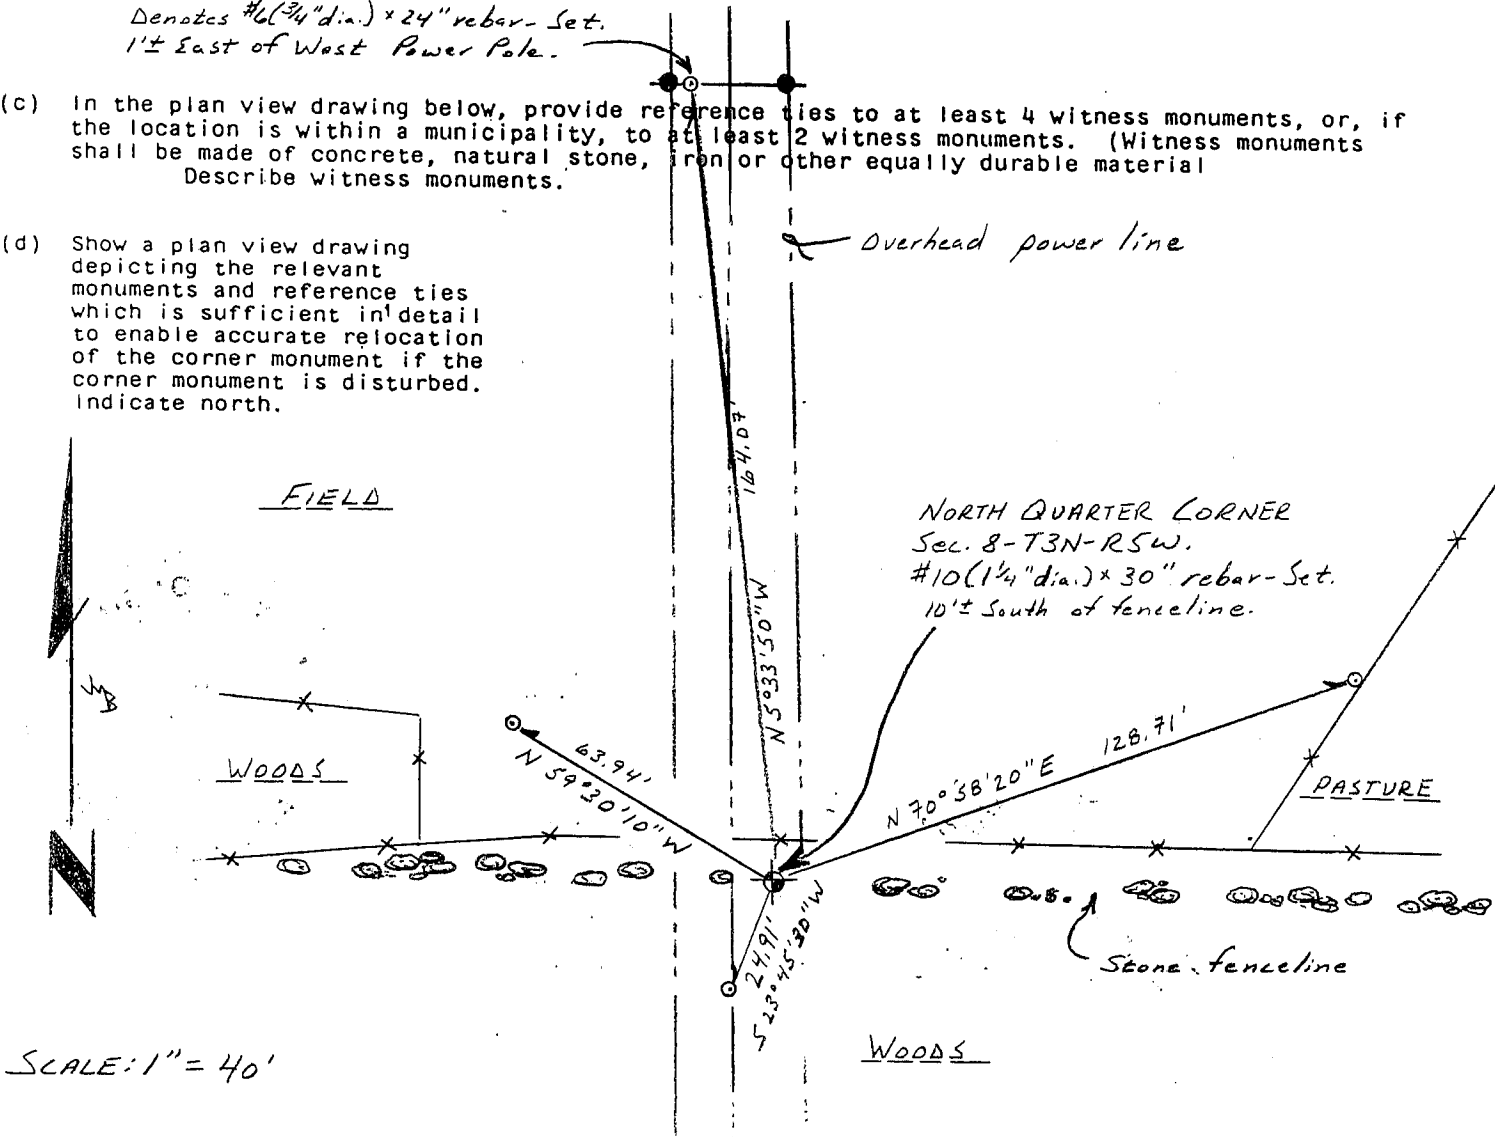 Denotes #6(3/4"dia.) × 24" rebar - Set.
1'± East of West Power Pole.
(c) In the plan view drawing below, provide reference ties to at least 4 witness monuments, or, if
the location is within a municipality, to at least 2 witness monuments. (Witness monuments
shall be made of concrete, natural stone, iron or other equally durable material
Describe witness monuments.
Overhead power line
(d) Show a plan view drawing
depicting the relevant
monuments and reference ties
which is sufficient in detail
to enable accurate relocation
of the corner monument if the
corner monument is disturbed.
Indicate north.
164.07'
N 5°33'50" W
FIELD
NORTH QUARTER CORNER
Sec. 8-T3N-R5W.
#10(1 1/4"dia.) × 30" rebar - Set.
10'± South of fenceline.
WOODS
63.94'
N 59°30'10" W
128.71'
N 70°58'20" E
PASTURE
24.91'
S 23°45'30" W
Stone fenceline
SCALE: 1" = 40'
WOODS
N